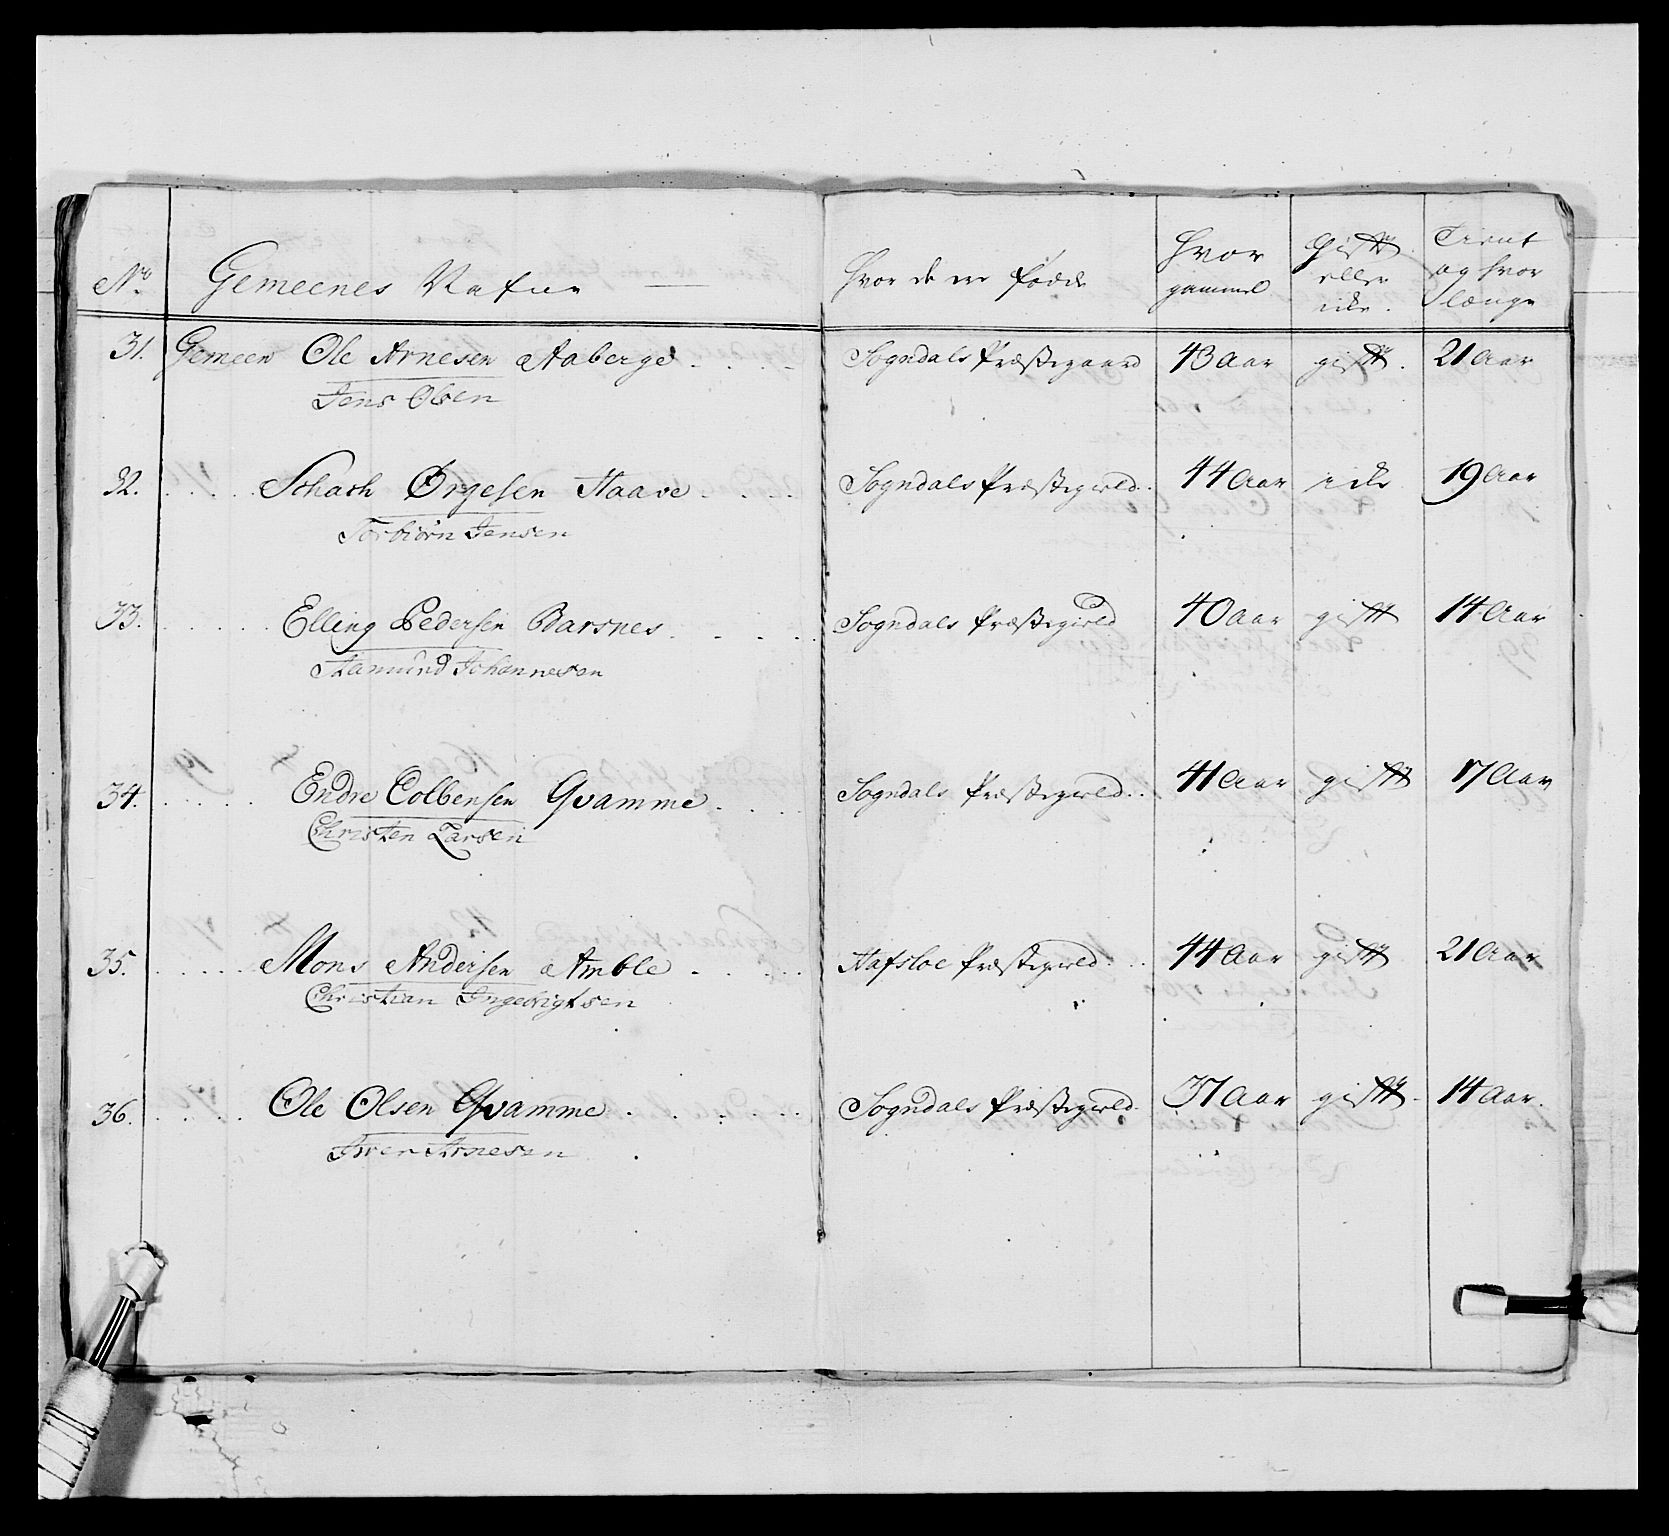 No. Gemeenes Nafne Hvor de ere fødde Hvor gammel Gift eller icke. Tient og hvor længe
31. Gemeen Ole Arnesen Aaberge Sogndals Præstegaard 43 Aar gift. 21 Aar
Jens Olsen
32. Schach Ørgesen Haave Sogndals Præstegield. 44 Aar icke 19 Aar
Torbiørn Jensen
33. Elling Pedersen Barsnes Sogndals Præstegield 40 Aar gift 14 Aar
Aamund Johannesen
34. Endre Colbensen Qvamme Sogndals Præstegield. 41 Aar gift 17 Aar
Christen Larsen
35. Mons Andersen Amble Hafsloe Præstegield. 44 Aar gift 21 Aar
Christian Ingebrigtsen
36. Ole Olsen Qvamme Sogndals Præstegield. 37 Aar gift 14 Aar.
Iver Arnesen